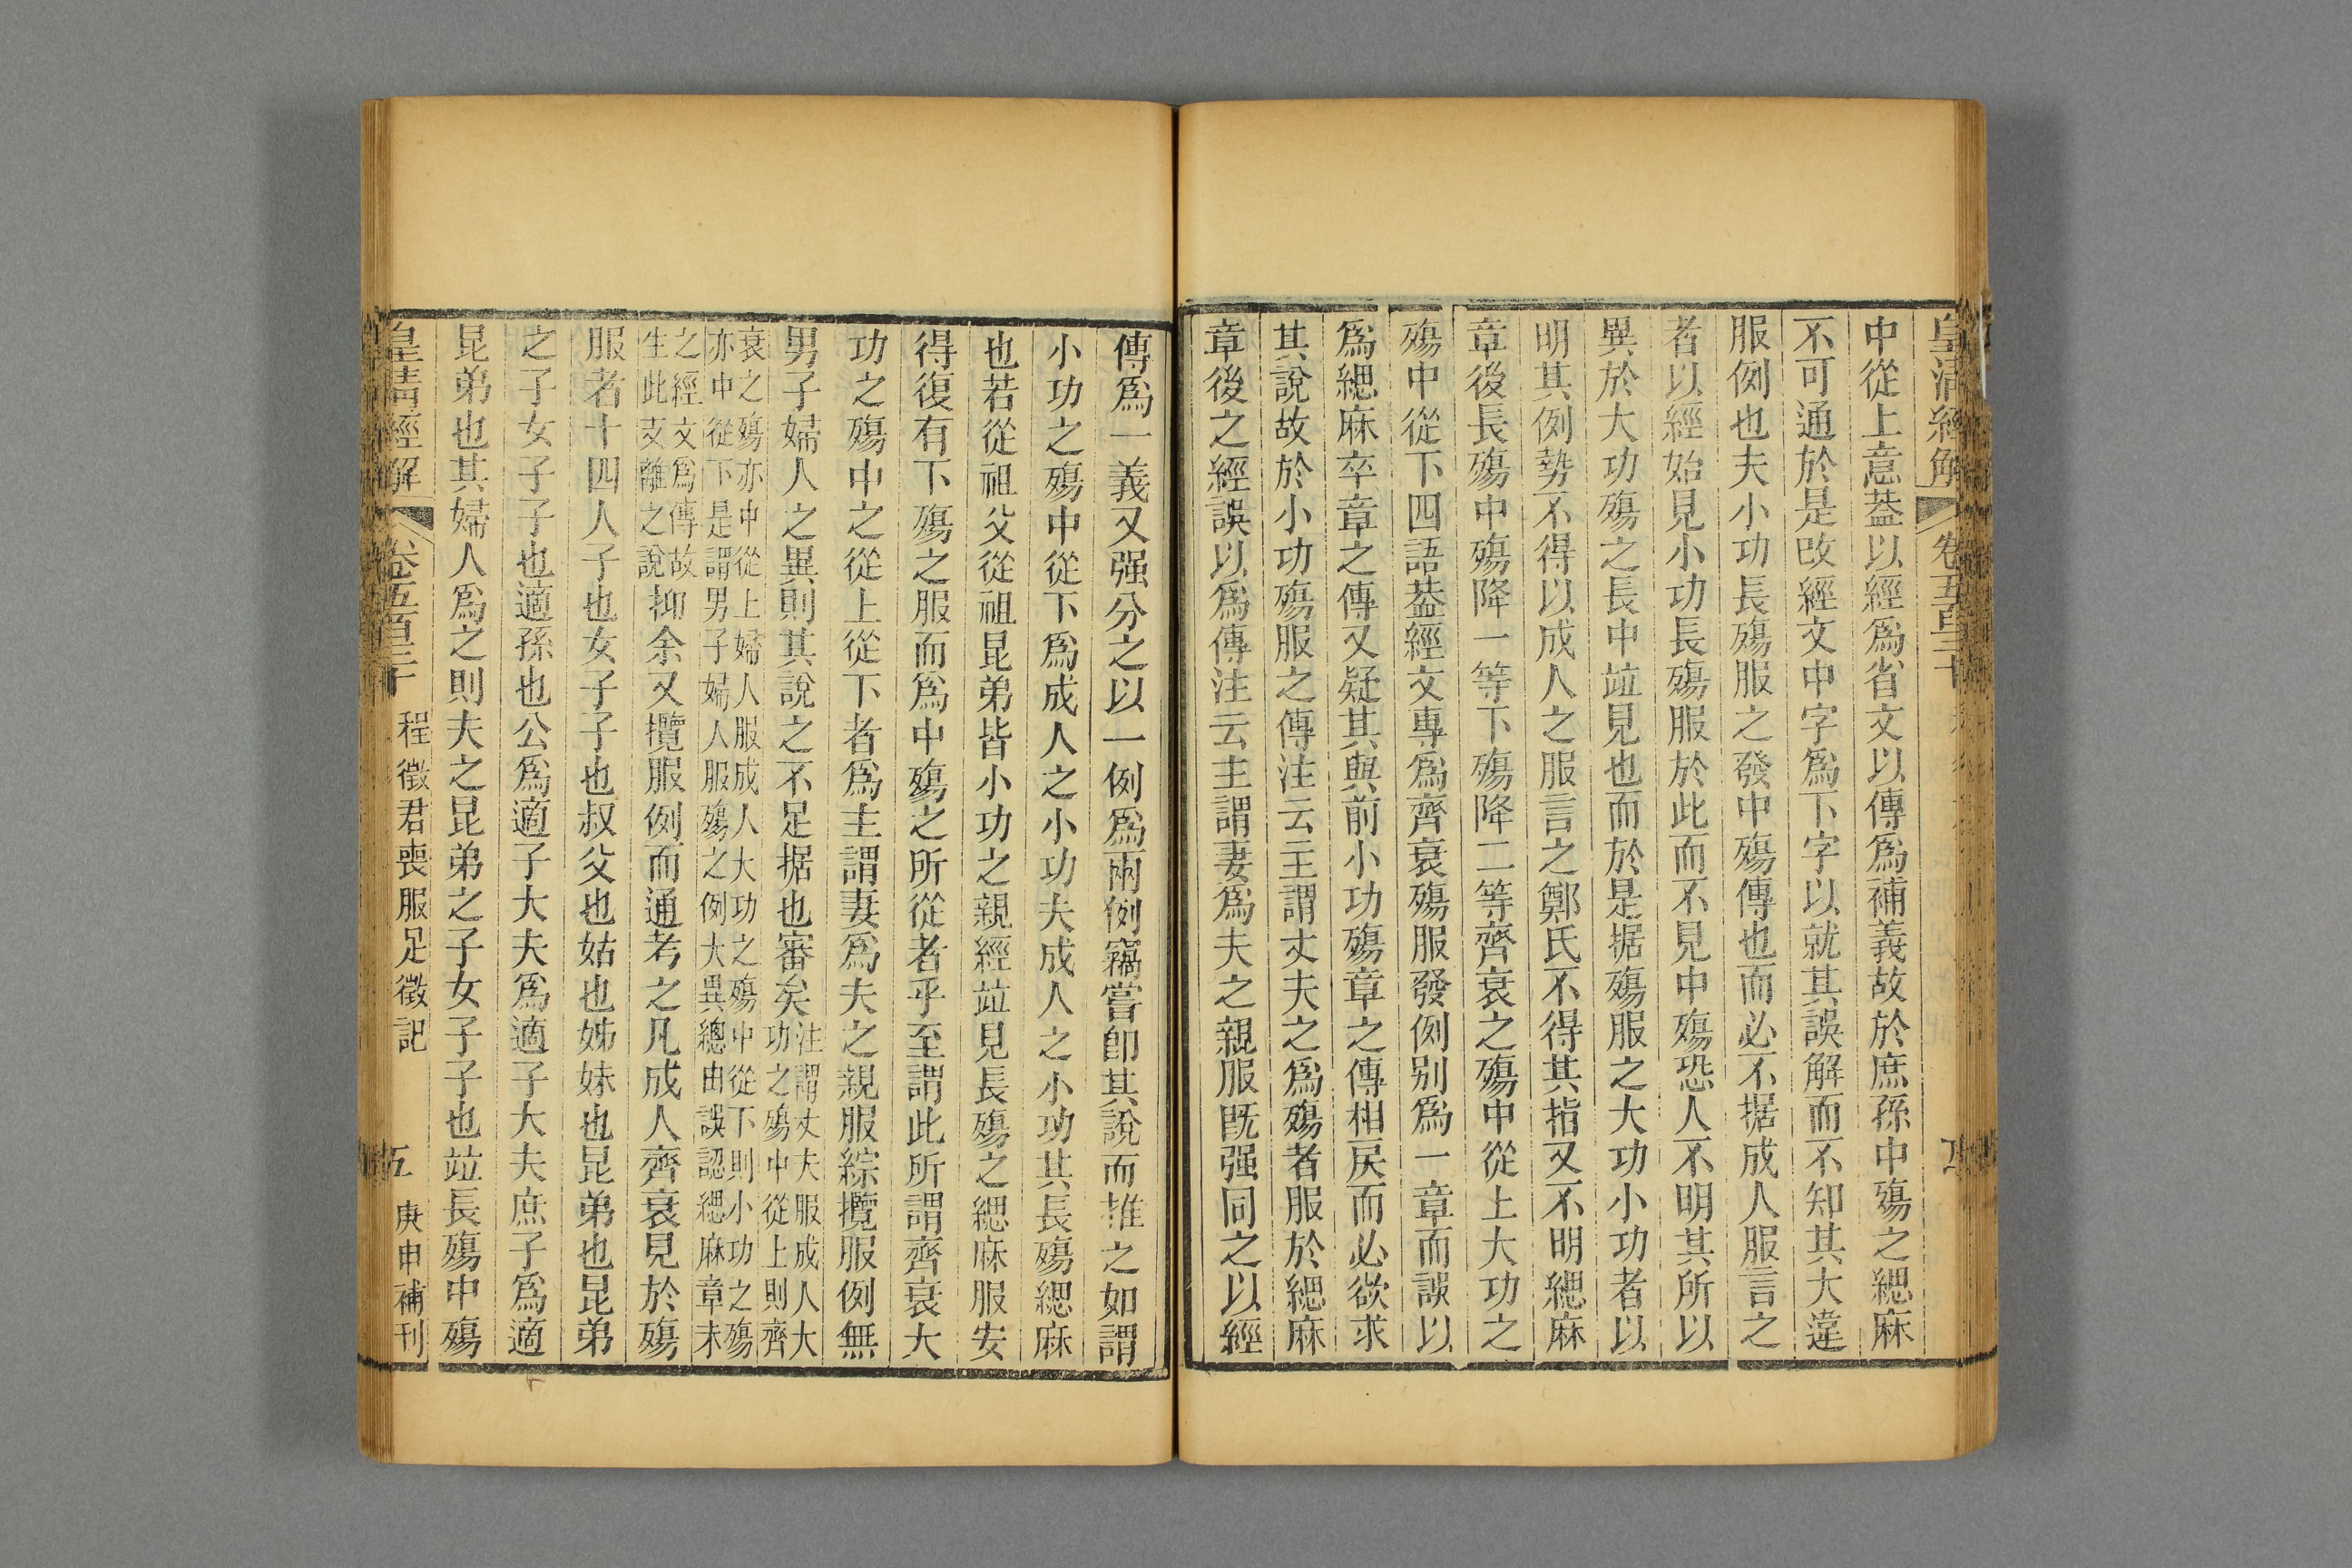 皇清經解
卷五百三十
中從上意葢以經爲省文以傳爲補義故於庶孫中殤之緦麻
不可通於是改經文中字爲下字以就其誤解而不知其大違
服例也夫小功長殤服之發中殤傳也而必不据成人服言之
者以經始見小功長殤服於此而不見中殤恐人不明其所以
異於大功殤之長中竝見也而於是据殤服之大功小功者以
明其例勢不得以成人之服言之鄭氏不得其指又不明緦麻
章後長殤中殤降一等下殤降二等齊衰之殤中從上大功之
殤中從下四語葢經文專爲齊衰殤服發例别爲一章而誤以
爲緦麻卒章之傳又疑其與前小功殤章之傳相戾而必欲求
其說故於小功殤服之傳注云主謂丈夫之爲殤者服於緦麻
章後之經誤以爲傳注云主謂妻爲夫之親服旣强同之以經
傳爲一義又强分之以一例爲兩例竊嘗卽其說而推之如謂
小功之殤中從下爲成人之小功夫成人之小功其長殤緦麻
也若從祖父從祖昆弟皆小功之親經竝見長殤之緦麻服安
得復有下殤之服而爲中殤之所從者乎至謂此所謂齊衰大
功之殤中之從上從下者爲主謂妻爲夫之親服綜攬服例無
男子婦人之異則其說之不足据也審矣
注謂丈夫服成人大
功之殤中從上則齊
衰之殤亦中從上婦人服成人大功之殤中從下則小功之殤
亦中從下是謂男子婦人服殤之例大異總由誤認緦麻章末
之經文爲傳故
生此支離之說
抑余又攬服例而通考之凡成人齊衰見於殤
服者十四人子也女子子也叔父也姑也姊妹也昆弟也昆弟
之子女子子也適孫也公爲適子大夫爲適子大夫庶子爲適
昆弟也其婦人爲之則夫之昆弟之子女子子也竝長殤中殤
皇清經解
卷五百三十
程徵君喪服足徵記
五
庚申補刊